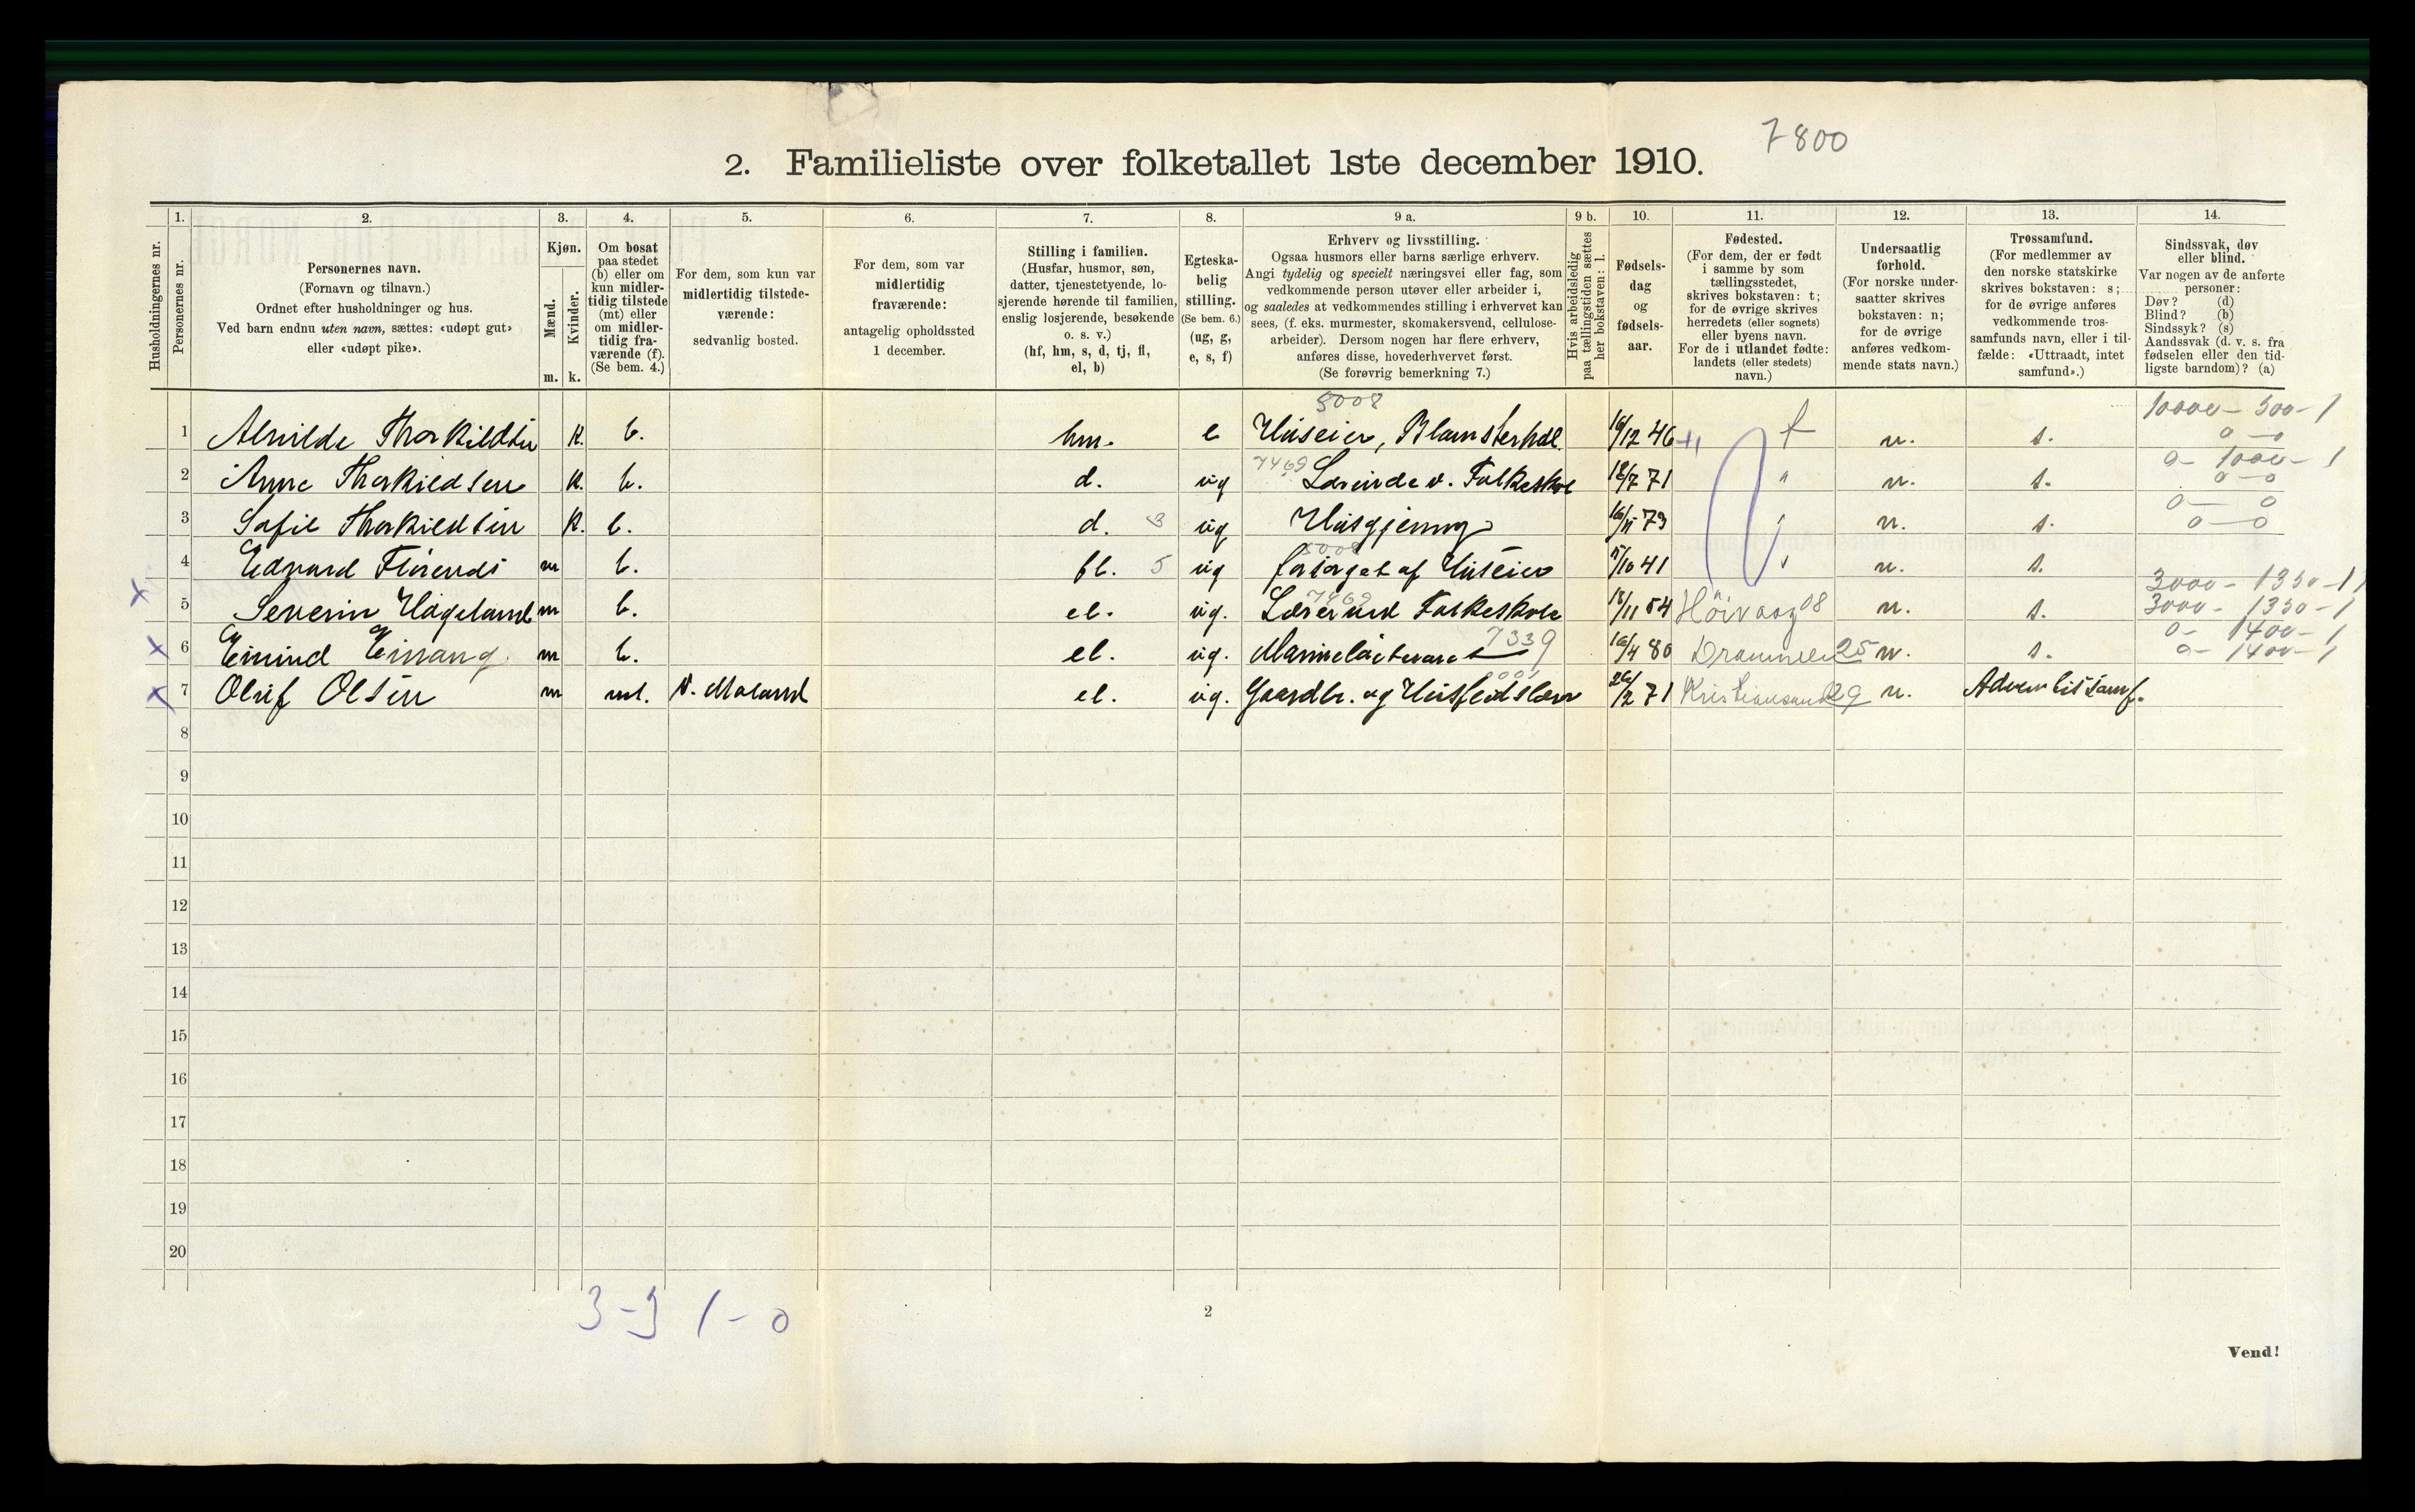 7800
2. Familieliste over folketallet 1ste december 1910.
Husholdningernes nr.
1.
Personernes nr.
2.
Personernes navn.
(Fornavn og tilnavn.)
Ordnet efter husholdninger og hus.
Ved barn endnu uten navn, sættes: «udøpt gut»
eller «udøpt pike».
3.
Kjøn.
Mænd.
Kvinder.
m. k.
4.
Om bosat
paa stedet
(b) eller om
kun midler-
tidig tilstede
(mt) eller
om midler-
tidig fra-
værende (f).
(Se bem. 4.)
5.
For dem, som kun var
midlertidig tilstede-
værende:
sedvanlig bosted.
6.
For dem, som var
midlertidig
fraværende:
antagelig opholdssted
1 december.
7.
Stilling i familien.
(Husfar, husmor, søn,
datter, tjenestetyende, lo-
sjerende hørende til familien,
enslig losjerende, besøkende
o. s. v.)
(hf, hm, s, d, tj, fl,
el, b)
8.
Egteska-
belig
stilling.
(Se bem. 6.)
(ug, g,
e, s, f)
9 a.
Erhverv og livsstilling.
Ogsaa husmors eller barns særlige erhverv.
Angi tydelig og specielt næringsvei eller fag, som
vedkommende person utøver eller arbeider i,
og saaledes at vedkommendes stilling i erhvervet kan
sees, (f. eks. murmester, skomakersvend, cellulose-
arbeider). Dersom nogen har flere erhverv,
anføres disse, hovederhvervet først.
(Se forøvrig bemerkning 7.)
9 b.
Hvis arbeidsledig
paa tællingstiden sættes
her bokstaven: l.
10.
Fødsels-
dag
og
fødsels-
aar.
11.
Fødested.
(For dem, der er født
i samme by som
tællingsstedet,
skrives bokstaven: t;
for de øvrige skrives
herredets (eller sognets)
eller byens navn.
For de i utlandet fødte:
landets (eller stedets)
navn.)
12.
Undersaatlig
forhold.
(For norske under-
saatter skrives
bokstaven: n;
for de øvrige
anføres vedkom-
mende stats navn.)
13.
Trossamfund.
(For medlemmer av
den norske statskirke
skrives bokstaven: s;
for de øvrige anføres
vedkommende tros-
samfunds navn, eller i til-
fælde: «Uttraadt, intet
samfund».)
14.
Sindssvak, døv
eller blind.
Var nogen av de anførte
personer:
Døv? (d)
Blind? (b)
Sindssyk? (s)
Aandssvak (d. v. s. fra
fødselen eller den tid-
ligste barndom)? (a)
5008 10000 - 300 - 1
1 Alvilde Thorkildsen k. b. hm. e Huseier, Blomsterhdl. 16/12 46 t n. s. 0 - 0
7469 0 - 1000 - 1
2 Anne Thorkildsen k. b. d. ug Lærerinde v. Folkeskole 12/7 71 " n. s. 0 - 0
0 - 0
3 Sofie Thorkildsen k. b. d. 3 ug Husgjerning 16/11 73 " n. s. 0 - 0
5008
4 Edvard m b. fl. 5 ug forsørget af Huseier 11/10 41 " n. s.
7469 3000 - 1350 - 1
5 Severin Hægeland m b. el. ug. Lærer ved Folkeskole 18/11 54 Höivaag 08 n. s. 3000 - 1350 - 1
7339 0 - 1400 - 1
6 Eivind Einang m b. el. ug. 16/4 80 Drammen 25 n. s. 0 - 1400 - 1
7 Oluf Olsen m mt. V. Moland el. ug. Gaardbr. og Husflidslærer 26/2 71 Kristiansand 29 n. Adventistsamf.
8
9
10
11
12
13
14
15
16
17
18
19
20
3 - 3 1 - 0
2
Vend!